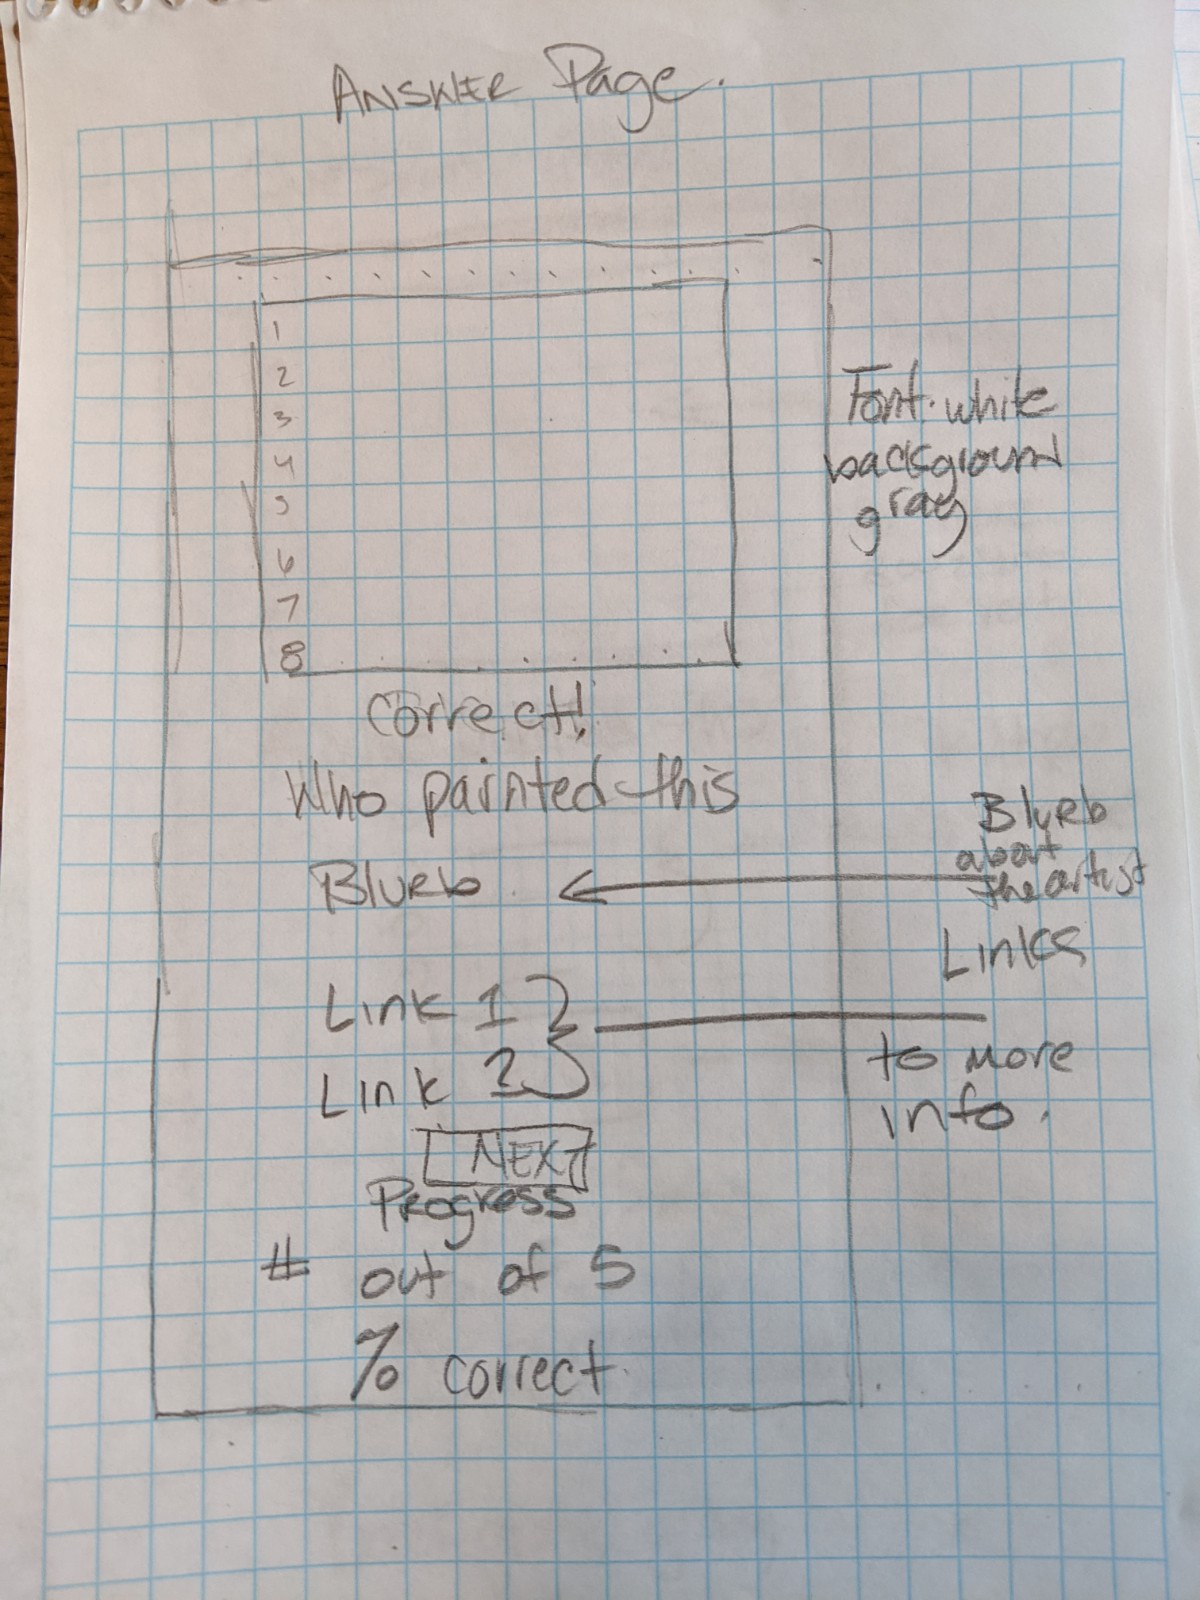 Answer Page.
1
2
3
4
5
6
7
8
Font. white
background
gray
Correct!
Who painted this
Blurb
Blurb
about
the artist
Link 1
Link 2
Links
to more
info.
NEXT
Progress
# out of 5
% correct